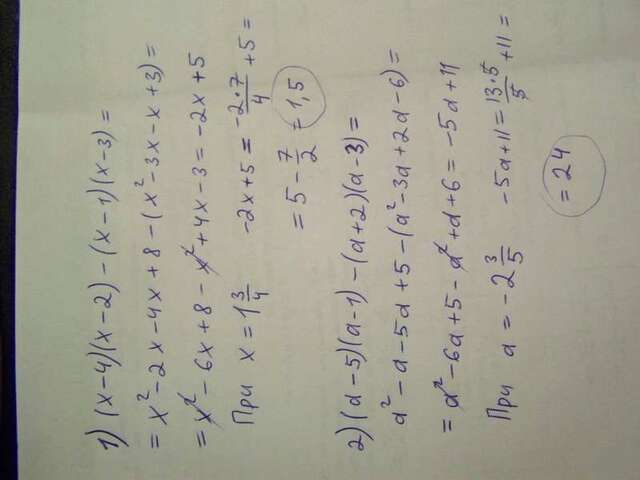 1) (x-4)(x-2) - (x-1)(x-3) =
= x² - 2x - 4x + 8 - (x² - 3x - x + 3) =
= x² - 6x + 8 - x² + 4x - 3 = -2x + 5
При x = 1 3/4 -2x + 5 = -2·7/4 + 5 =
= 5 - 7/2 = 1,5
2) (a-5)(a-1) - (a+2)(a-3) =
a² - a - 5a + 5 - (a² - 3a + 2a - 6) =
= a² - 6a + 5 - a² + a + 6 = -5a + 11
При a = -2 3/5 -5a + 11 = 13·5/5 + 11 =
= 24